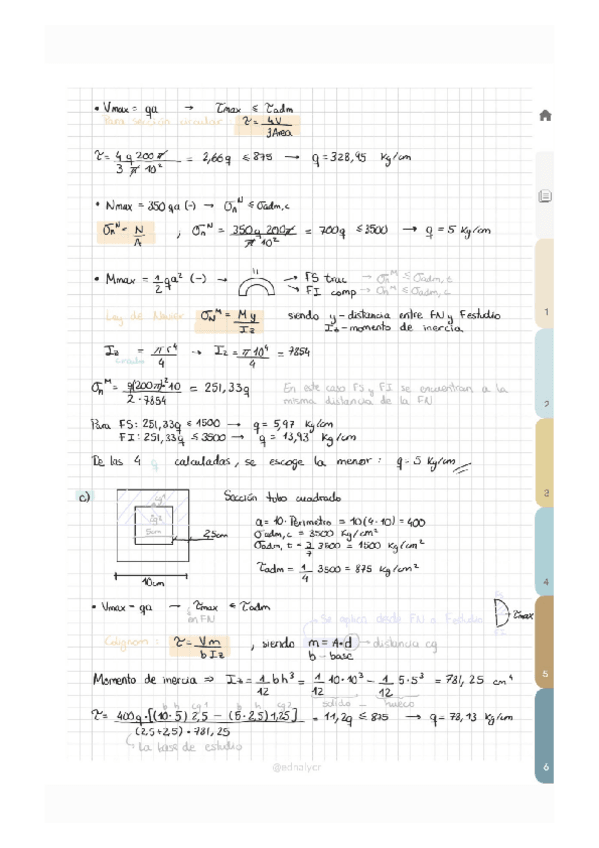 • Vmax = qa → τmax ≤ τadm
Para sección circular τ = 4V / 3Area
τ = 4 q 200 π / 3 π 10² = 2,66q ≤ 875 → q = 328,95 Kg/cm
• Nmax = 350 qa (-) → σn^N ≤ σadm,c
σn^N = N / A , σn^N = 350q 200π / π 10² = 700q ≤ 3500 → q = 5 Kg/cm
• Mmax = 1/2 qa² (-) → → FS trac → σn^M ≤ σadm,t
→ FI comp → σn^M ≤ σadm,c
Ley de Navier σN^M = M y / Iz siendo y - distancia entre FN y Festudio
Iz - momento de inercia
Iz = π r⁴ / 4 → Iz = π 10⁴ / 4 = 7854
σn^M = q(200π)² 10 / 2 · 7854 = 251,33q En este caso FS y FI se encuentran a la
misma distancia de la FN
Para FS: 251,33q ≤ 1500 → q = 5,97 Kg/cm
FI: 251,33q ≤ 3500 → q = 13,93 Kg/cm
De las 4 q calculadas, se escoge la menor: q = 5 Kg/cm
c) Sección tubo cuadrado
5cm
2,5cm
10cm
a = 10 · Perimetro = 10 (4 · 10) = 400
σadm,c = 3500 Kg/cm²
σadm,t = 3/7 3500 = 1500 Kg/cm²
τadm = 1/4 3500 = 875 Kg/cm²
• Vmax = qa → τmax ≤ τadm
en FN
Se aplica desde FN a Festudio
τmax
Colignon: τ = V m / b Iz , siendo m = A · d → distancia cg
b - base
Momento de inercia ⇒ Iz = 1/12 b h³ = 1/12 10 · 10³ - 1/12 5 · 5³ = 781,25 cm⁴
solido - hueco
b h cg1 b h cg2
τ = 400q · [(10 · 5) 2,5 - (5 · 2,5) 1,25] / (2,5 + 2,5) · 781,25 = 11,2q ≤ 875 → q = 78,13 Kg/cm
La base de estudio
@ednalycr
1
2
3
4
5
6